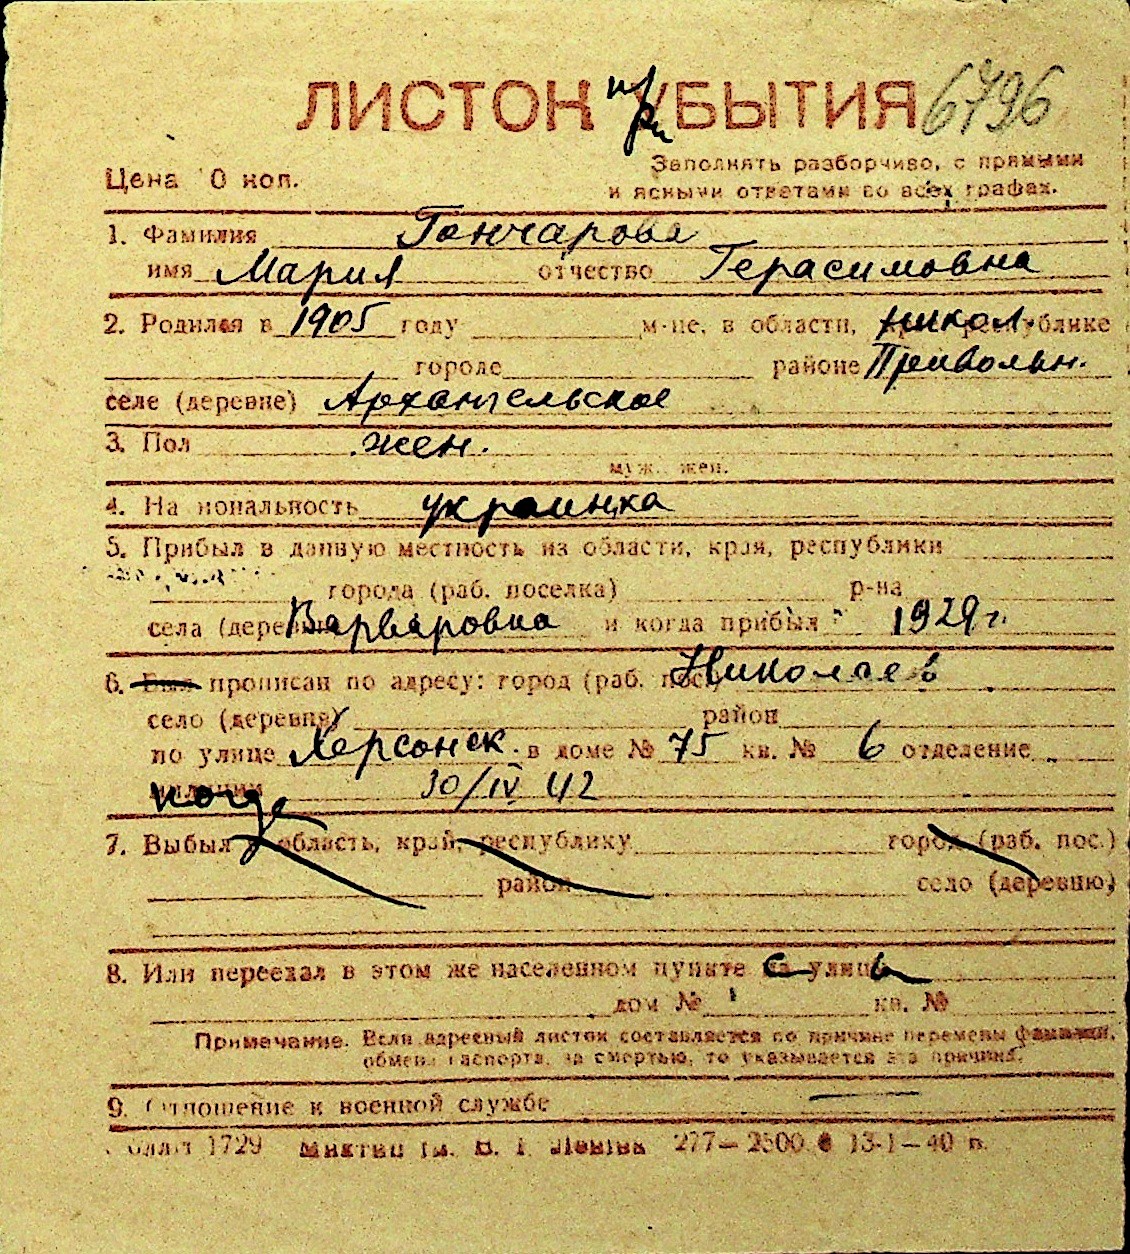 ЛИСТОК при УБЫТИЯ 6796
Цена 10 коп. Заполнять разборчиво, с прямыми
и ясными ответами во всех графах.
1. Фамилия Гончарова
имя Мария отчество Герасимовна
2. Родился в 1905 году м-це, в области, Никол. республике
городе районе Привольн.
селе (деревне) Архангельское
3. Пол жен.
муж. жен.
4. Национальность украинка
5. Прибыл в данную местность из области, края, республики
города (раб. поселка) р-на
села (деревни) Варваровка и когда прибыл 1929 г.
6. Был прописан по адресу: город (раб. пос.) Николаев
село (деревня) район
по улице Херсонск. в доме № 75 кв. № 6 отделение
милиции когда 30/IV 42
7. Выбыл в область, край, республику город (раб. пос.)
район село (деревню)
8. Или переехал в этом же населенном пункте с улицы
дом № кв. №
Примечание. Если адресный листок составляется по причине перемены фамилии,
обмена паспорта, за смертью, то указывается эта причина.
9. Отношение к военной службе —
1729 277—2500 13-1—40 р.